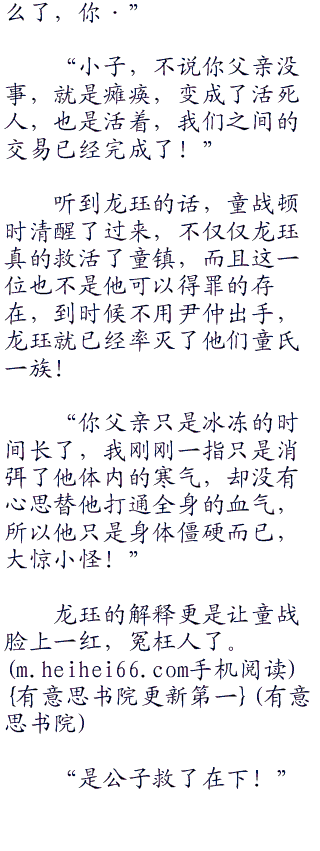 么了，你·”
“小子，不说你父亲没
事，就是瘫痪，变成了活死
人，也是活着，我们之间的
交易已经完成了！”
听到龙珏的话，童战顿
时清醒了过来，不仅仅龙珏
真的救活了童镇，而且这一
位也不是他可以得罪的存
在，到时候不用尹仲出手，
龙珏就已经率灭了他们童氏
一族！
“你父亲只是冰冻的时
间长了，我刚刚一指只是消
弭了他体内的寒气，却没有
心思替他打通全身的血气，
所以他只是身体僵硬而已，
大惊小怪！”
龙珏的解释更是让童战
脸上一红，冤枉人了。
(m.heihei66.com手机阅读)
{有意思书院更新第一}(有意
思书院)
“是公子救了在下！”